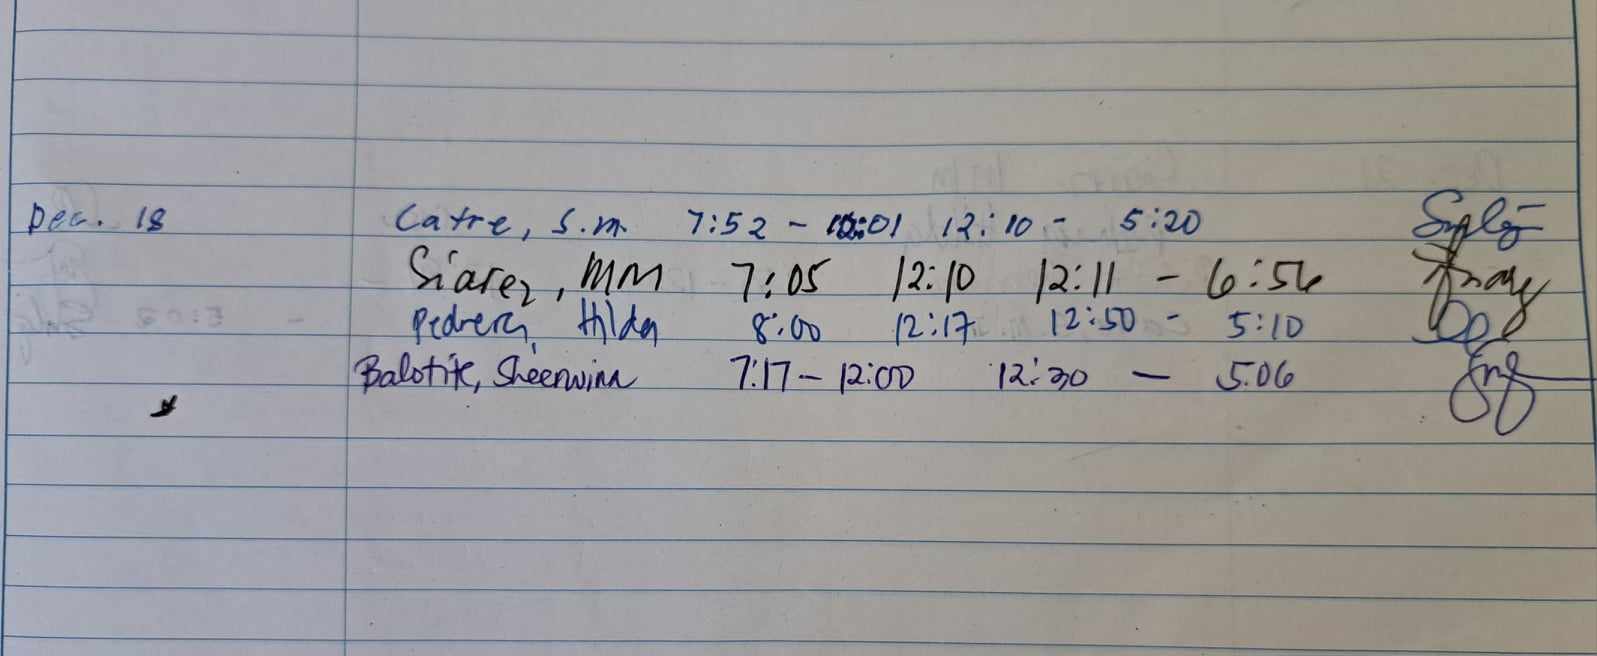 Dec. 18 Catre, S.M. 7:52 - 12:01 12:10 - 5:20
Siarez, MM 7:05 12:10 12:11 - 6:56
Pedrera, Hilda 8:00 12:17 12:50 - 5:10
Balotite, Sheenwinn 7:17 - 12:00 12:30 - 5:06